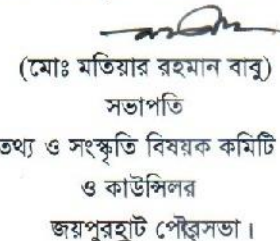 (মোঃ মতিয়ার রহমান বাবু)
সভাপতি
তথ্য ও সংস্কৃতি বিষয়ক কমিটি
ও কাউন্সিলর
জয়পুরহাট পৌরসভা।